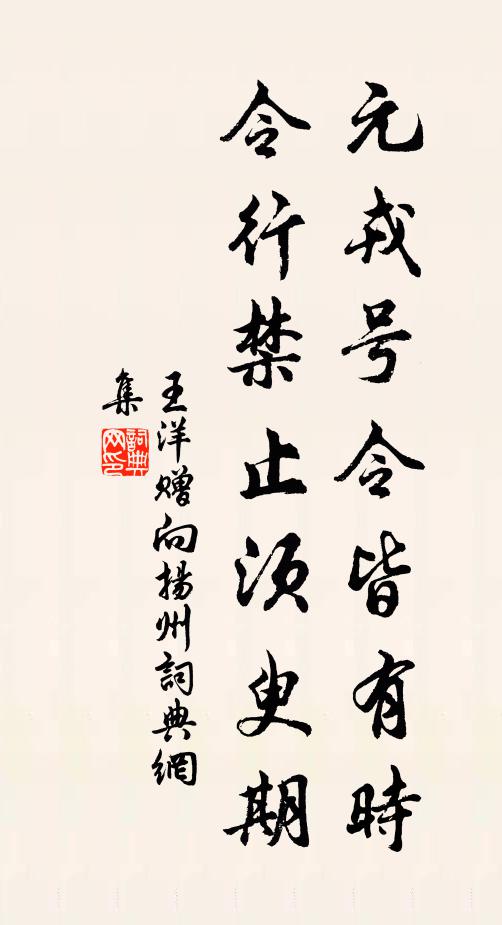 元戎号令皆有時
令行禁止須臾期
王洋贈向揚州詞典網
集
詞典網印